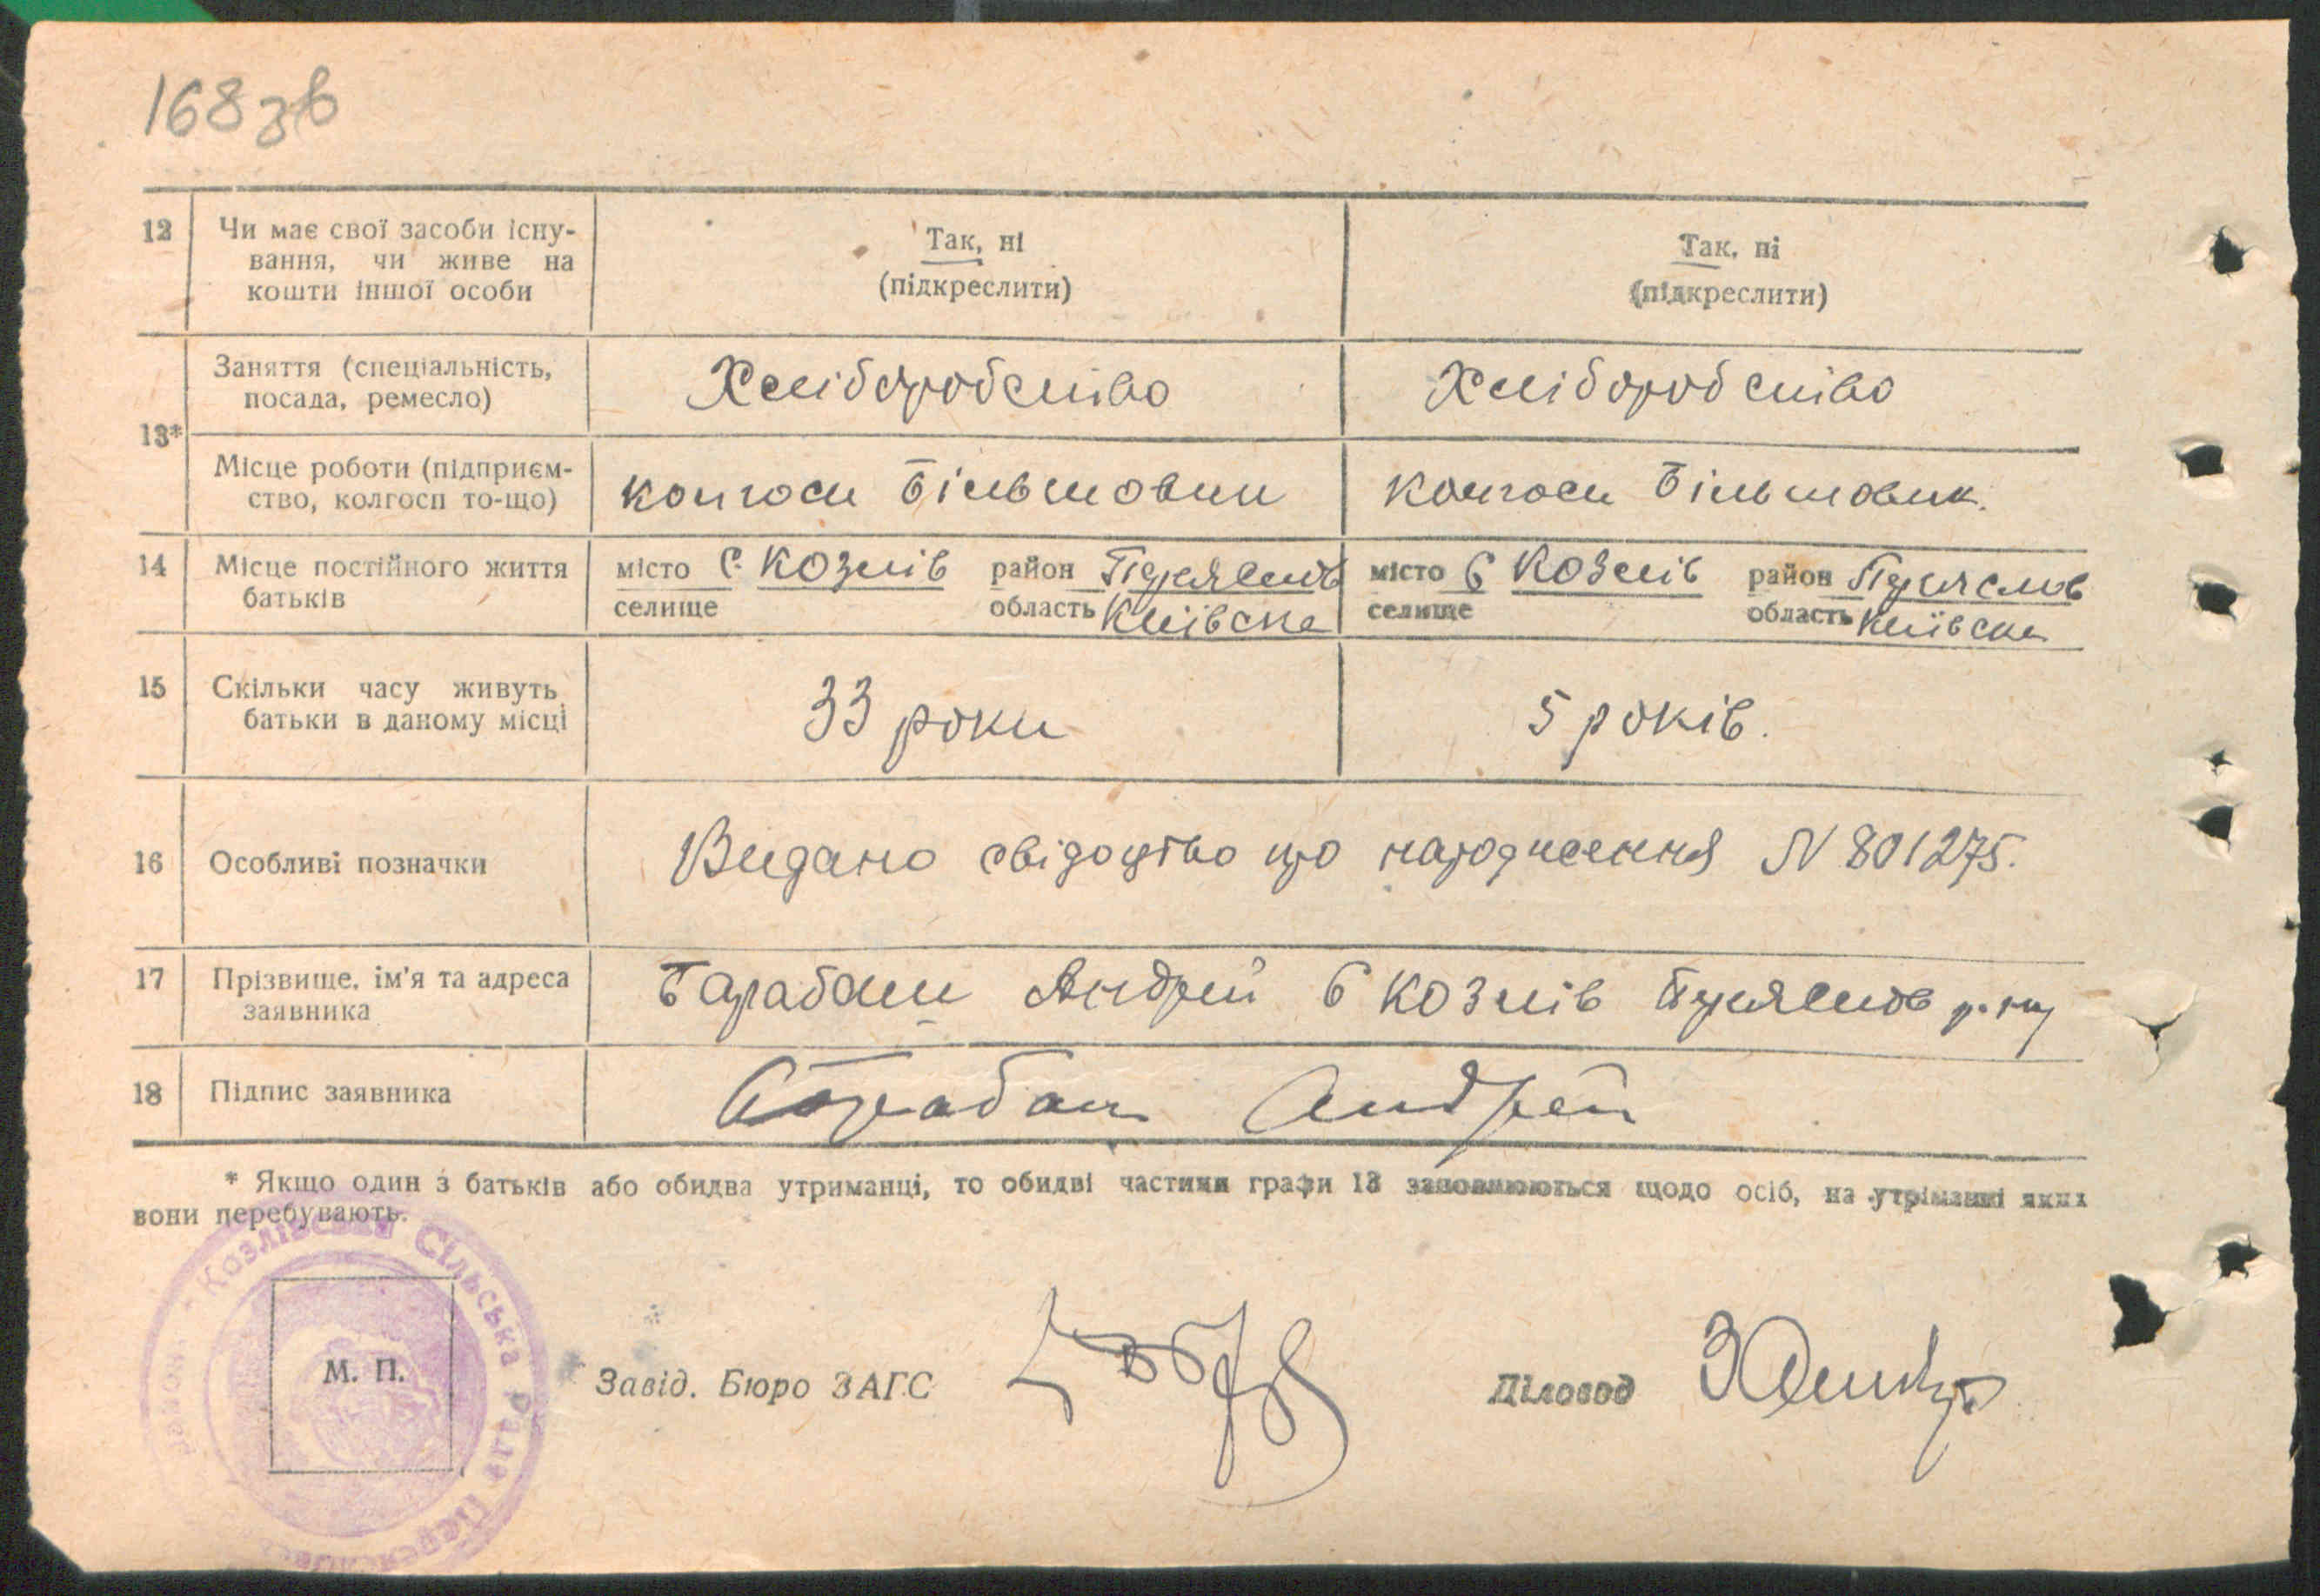 168 зв
12 Чи має свої засоби існу- Так, ні Так, ні
вання, чи живе на (підкреслити) (підкреслити)
кошти іншої особи
13* Заняття (спеціальність, Хліборобство Хліборобство
посада, ремесло)
Місце роботи (підприєм- колгосп Більшовик колгосп Більшовик.
ство, колгосп то-що)
14 Місце постійного життя місто с. Козлів район місто с Козлів район
батьків селище область Київська селище область Київська
15 Скільки часу живуть 33 роки 5 років.
батьки в даному місці
16 Особливі позначки Видано свідоцтво про народження N 801275.
17 Прізвище, ім'я та адреса Барабаш Андрій с Козлів р-ну
заявника
18 Підпис заявника Барабаш Андрей
* Якщо один з батьків або обидва утриманці, то обидві частини графи 13 заповнюються щодо осіб, на утриманні яких
вони перебувають.
Козлівська Сільська Рада
М. П.
Завід. Бюро ЗАГС Діловод